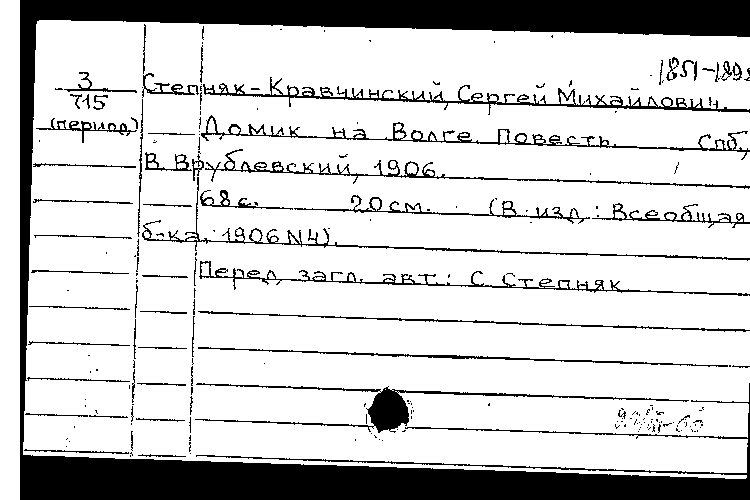 1851-1895
З
715
(период)
Степняк-Кравчинский, Сергей Михайлович.
Домик на Волге. Повесть. Спб.,
В. Врублевский, 1906.
68 с. 20 см. (В изд.: Всеобщая
б-ка. 1906 N4).
Перед загл. авт.: С. Степняк